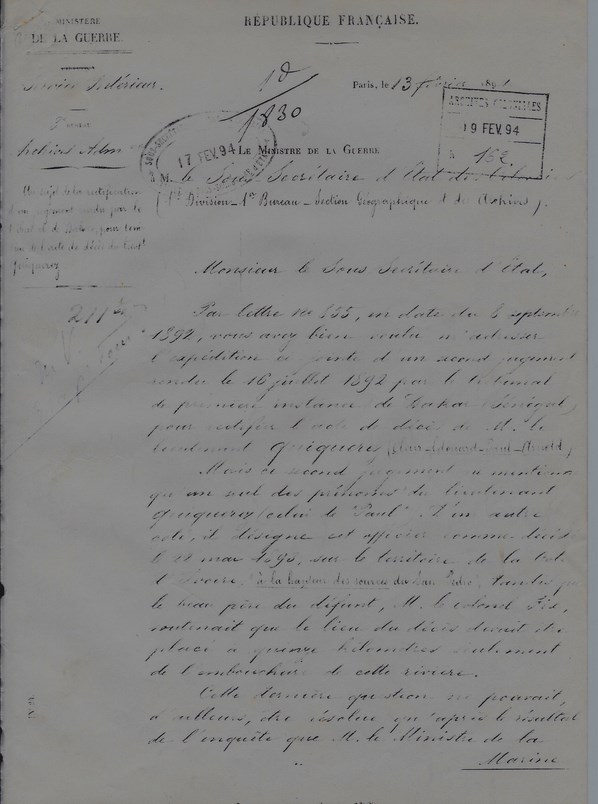 MINISTÈRE
DE LA GUERRE.
RÉPUBLIQUE FRANÇAISE.
Service Intérieur.
Paris, le 13 février 1894
1830
ARCHIVES COLONIALES
19 FEV. 94
17 FEV. 94
LE MINISTRE DE LA GUERRE
à M. le Sous Secrétaire d'État des Colonies
(1re Division _ 1er Bureau _ Section Géographique et des Archives).
Au sujet de la rectification
d'un jugement rendu par le
Monsieur le Sous Secrétaire d'État,
Par lettre No 455, en date du 6 septembre
1892, vous avez bien voulu m'adresser
l'expédition ci jointe d'un second jugement
rendu le 16 juillet 1892 par le tribunal
de première instance de Dakar (Sénégal)
pour rectifier l'acte de décès de M. le
lieutenant Quiquerez
Mais ce second jugement ne mentionne
qu'un seul des prénoms du lieutenant
Quiquerez (celui de "Paul". D'un autre
côté, il désigne cet officier comme décédé
le mai sur le territoire de la Côte
d'Ivoire, "à la hauteur des sources du San Pedro", tandis que
le beau père du défunt, M. le colonel Fix,
soutenait que le lieu du décès devait être
placé à quinze kilomètres seulement
de l'embouchure de cette rivière.
Cette dernière question ne pouvait,
d'ailleurs, être résolue qu'après le résultat
de l'enquête que M. le Ministre de la
Marine